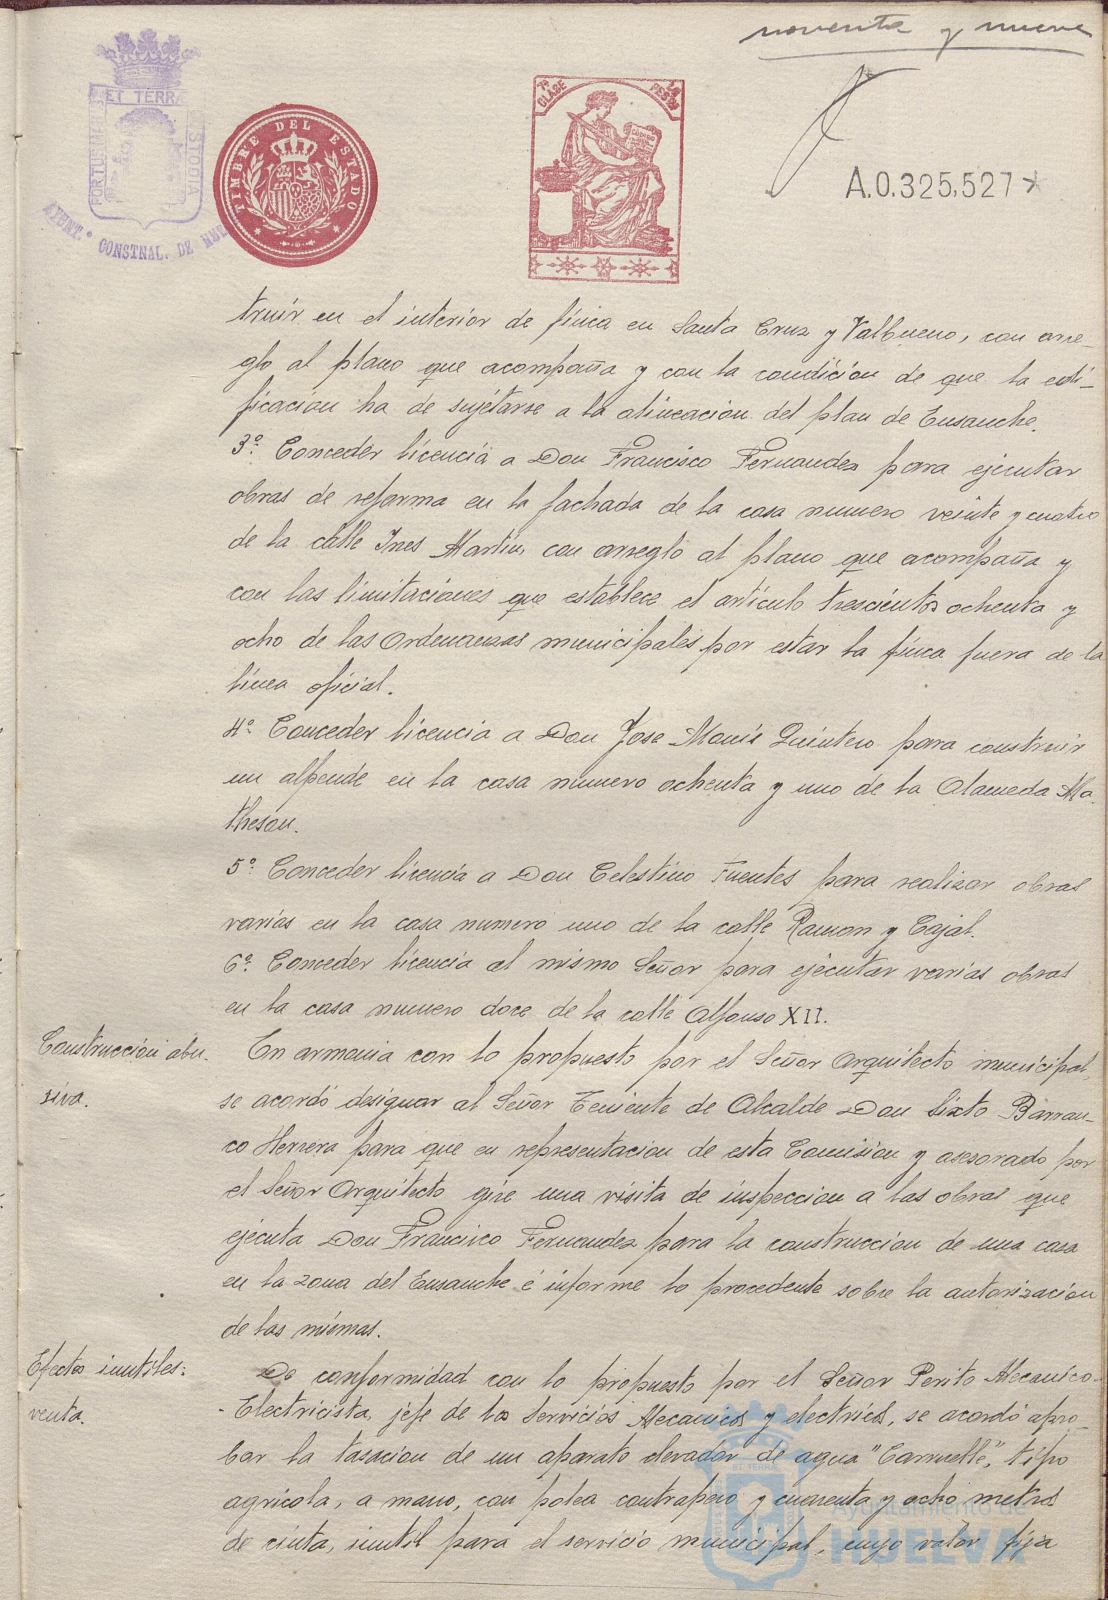 noventa y nueve
ET TERRÆ
PORTUS MARIS
CUSTODIA
AYUNT.º CONSTNAL. DE HUE
TIMBRE DEL ESTADO
7ª CLASE
A.0.325,527*
truir en el interior de finca en Santa Cruz y Valbueno, con arre-
glo al plano que acompaña y con la condición de que la edi-
ficacion ha de sujetarse a la alineacion del plan de Ensanche.
3º Conceder licencia a Don Francisco Fernandez para ejecutar
obras de reforma en la fachada de la casa numero veinte y cuatro
de la calle Ines Martin, con arreglo al plano que acompaña y
con las limitaciones que establece el articulo trescientos ochenta y
ocho de las Ordenanzas municipales por estar la finca fuera de la
linea oficial.
4º Conceder licencia a Don Jose Maria Quintero para construir
un alpende en la casa numero ochenta y uno de la Alameda Ma-
theson.
5º Conceder licencia a Don Celestino Fuentes para realizar obras
varias en la casa numero uno de la calle Ramon y Cajal.
6º Conceder licencia al mismo Señor para ejecutar varias obras
en la casa numero doce de la calle Alfonso XII.
Construccion abu-
siva.
En armonia con lo propuesto por el Señor Arquitecto municipal,
se acordó designar al Señor Teniente de Alcalde Don Sixto Barran-
co Herrera para que en representacion de esta Comision y asesorado por
el Señor Arquitecto gire una visita de inspeccion a las obras que
ejecuta Don Francisco Fernandez para la construccion de una casa
en la zona del Ensanche é informe lo procedente sobre la autorizacion
de las mismas.
Efectos inutiles:
venta.
De conformidad con lo propuesto por el Señor Perito Mecanico-
-Electricista, jefe de los Servicios Mecanicos y electricos, se acordó apro-
bar la tasacion de un aparato elevador de agua "Carruelle", tipo
agricola, a mano, con polea contrapeso y cuarenta y ocho metros
de cinta, inutil para el servicio municipal, cuyo valor fija
Ayuntamiento de
HUELVA